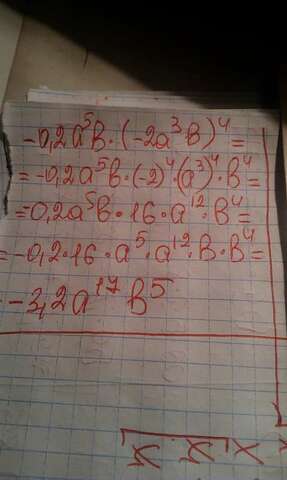 -0,2a⁵b·(-2a³·b)⁴=
=-0,2a⁵b·(-2)⁴·(a³)⁴·b⁴=
=-0,2a⁵b·16·a¹²·b⁴=
=-0,2·16·a⁵·a¹²·b·b⁴=
-3,2a¹⁷b⁵